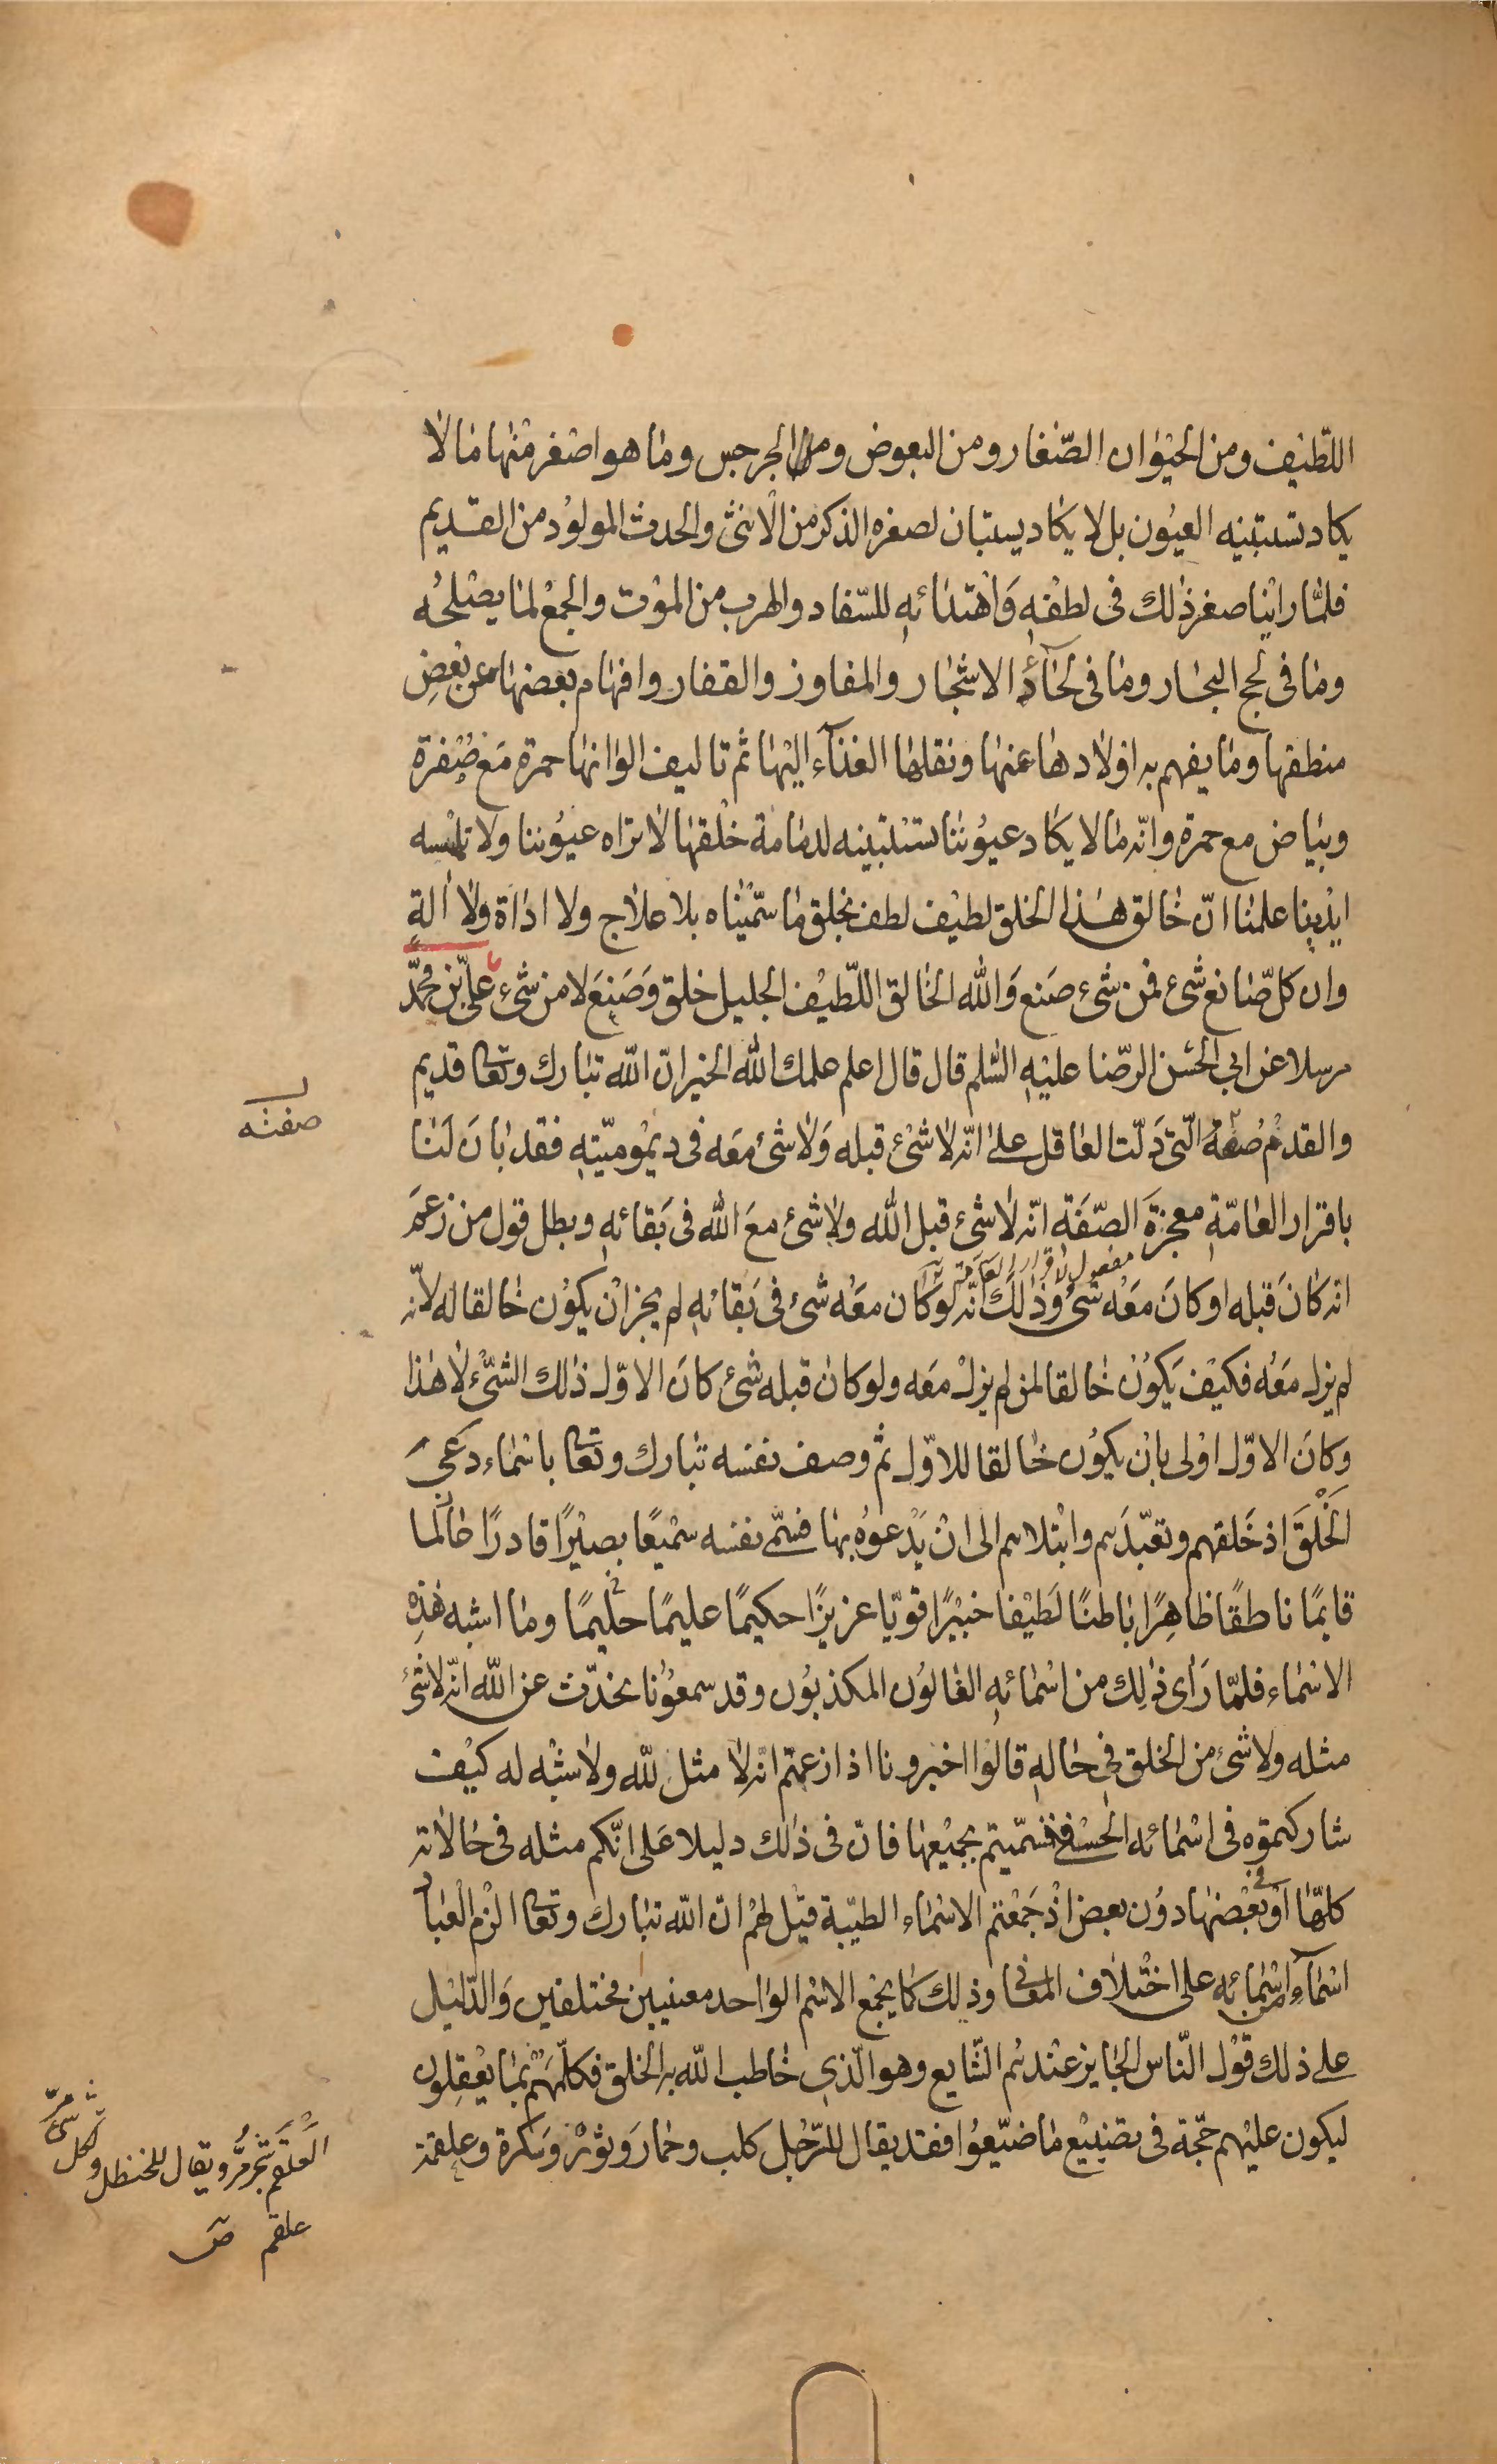 اللّطيف ومن الحيوان الصّغار ومن البعوض والجرجس وما هو اصغر منها ما لا
يكاد تستبينه العيون بل لا يكاد يستبان لصغره الذكر من الانثى والحدث المولود من القديم
فلمّا راينا صغر ذلك فى لطفه وَاهْتدائه للسّفاد والهرب من الموت والجمع لما يصْلحُه
وما فى لجج البحار وما فى لحآء الاشجار والمفاوز والقفار وافهام بعضها عن بعْضِ
منطقها وما يفهم به اولادها عنها ونقلها الغذآء اليها ثم تاليف الوانها حمرة مَع صُفرة
وبياض مع حمرة وانّه ما لا يكاد عيوُننا تستبينه لدمامة خلْقها لا تراه عيوُننا ولا تلمسه
ايدينا علمنا انّ خالق هذا الخلق لطيف لطف بخلق ما سمّيناه بلا علاج ولا اداة ولا الةٍ
وان كلّ صانع شئ فمن شئ صَنع وَالله الخالق اللّطيف الجليل خلق وَصَنعَ لا من شئ علىّ بن محمّد
مرسلا عن ابى الحسَن الرّضا عليْهِ السّلم قال قال اعلم علمك الله الخير انّ الله تبارك وتعا قديم
والقدمُ صفة الّتى دَلّت العاقل على انّه لا شئ قبله وَلا شئ معَه فى ديموميّتهِ فقد بَانَ لَنا
باقرار العامّةِ معجزَةَ الصّفَة انّه لا شئ قبل الله ولا شئ معَ الله فى بَقائهِ وبطل قول من زعمَ
مفعول لاقرار العامة
انه كانَ قبله او كانَ معَه شئ وذلكَ انّه لو كان معَه شئ فى بَقائهِ لم يجز انْ يكوُن خالقا له لانّه
لم يزل معَه فكيف يَكوُن خالقا لمن لم يزل معَه ولو كان قبله شئ كانَ الاوّل ذلك الشّئ لا هذا
وكانَ الاوّل اولى بان يكوُن خالقا للاوّل ثم وصف نفسه تبارك وتعا باسماء دعىَ
الخَلْقَ اذ خَلقهم وتعبّدَهم وابْتلاهم الى انْ يَدْعوُه بها فسمّى نفسه سميعًا بصيْرًا قادرًا
قايمًا ناطقًا ظاهِرًا باطنًا لَطيْفا خبيْرًا قويّا عزيزًا حكيمًا عليمًا حليمًا وما اشبه هذِهِ
الاسماء فلمّا رَاى ذلِك من اسْمائهِ الغالوُن المكذبوُن وقد سمعوُنا نحدّث عن الله انّه لا شئ
مثله ولا شئ من الخلق فى حالهِ قالوا اخبرونا اذا زعمتم انّه لا مثل لله ولا شبْه له كيْف
شاركتموه فى اسْمائه الحسنى فتسمّيتم بجميْعها فان فى ذلك دليلا عَلى انّكم مثله فى حالاته
كلّها اوْ فى بعْضها دوُن بعض اذْ جَمعْتم الاسْماء الطيّبة قيْل لهُم انّ الله تبارك وتعا الزم العبادَ
اسْمآء من اسْمائهِ على اختلاف المعانى وذلك كما يجمع الاسْم الواحد معنيين مختلفين وَالدّليل
على ذلك قوْل النّاس الجايز عنْدهم الشّايع وهو الّذى خاطب الله به الخلق فكلّمَهُمْ بمَا يعْقِلون
ليكون عليْهم حجّة فى تضييْع ما ضيّعوُا فقد يقال للرّجُل كلب وحمار وَثوْر وَسكرة وعلقمة
صفته
العَلقم شجر مُرّ ويقال للحنظل ولكل شئ مرّ
علقم ص